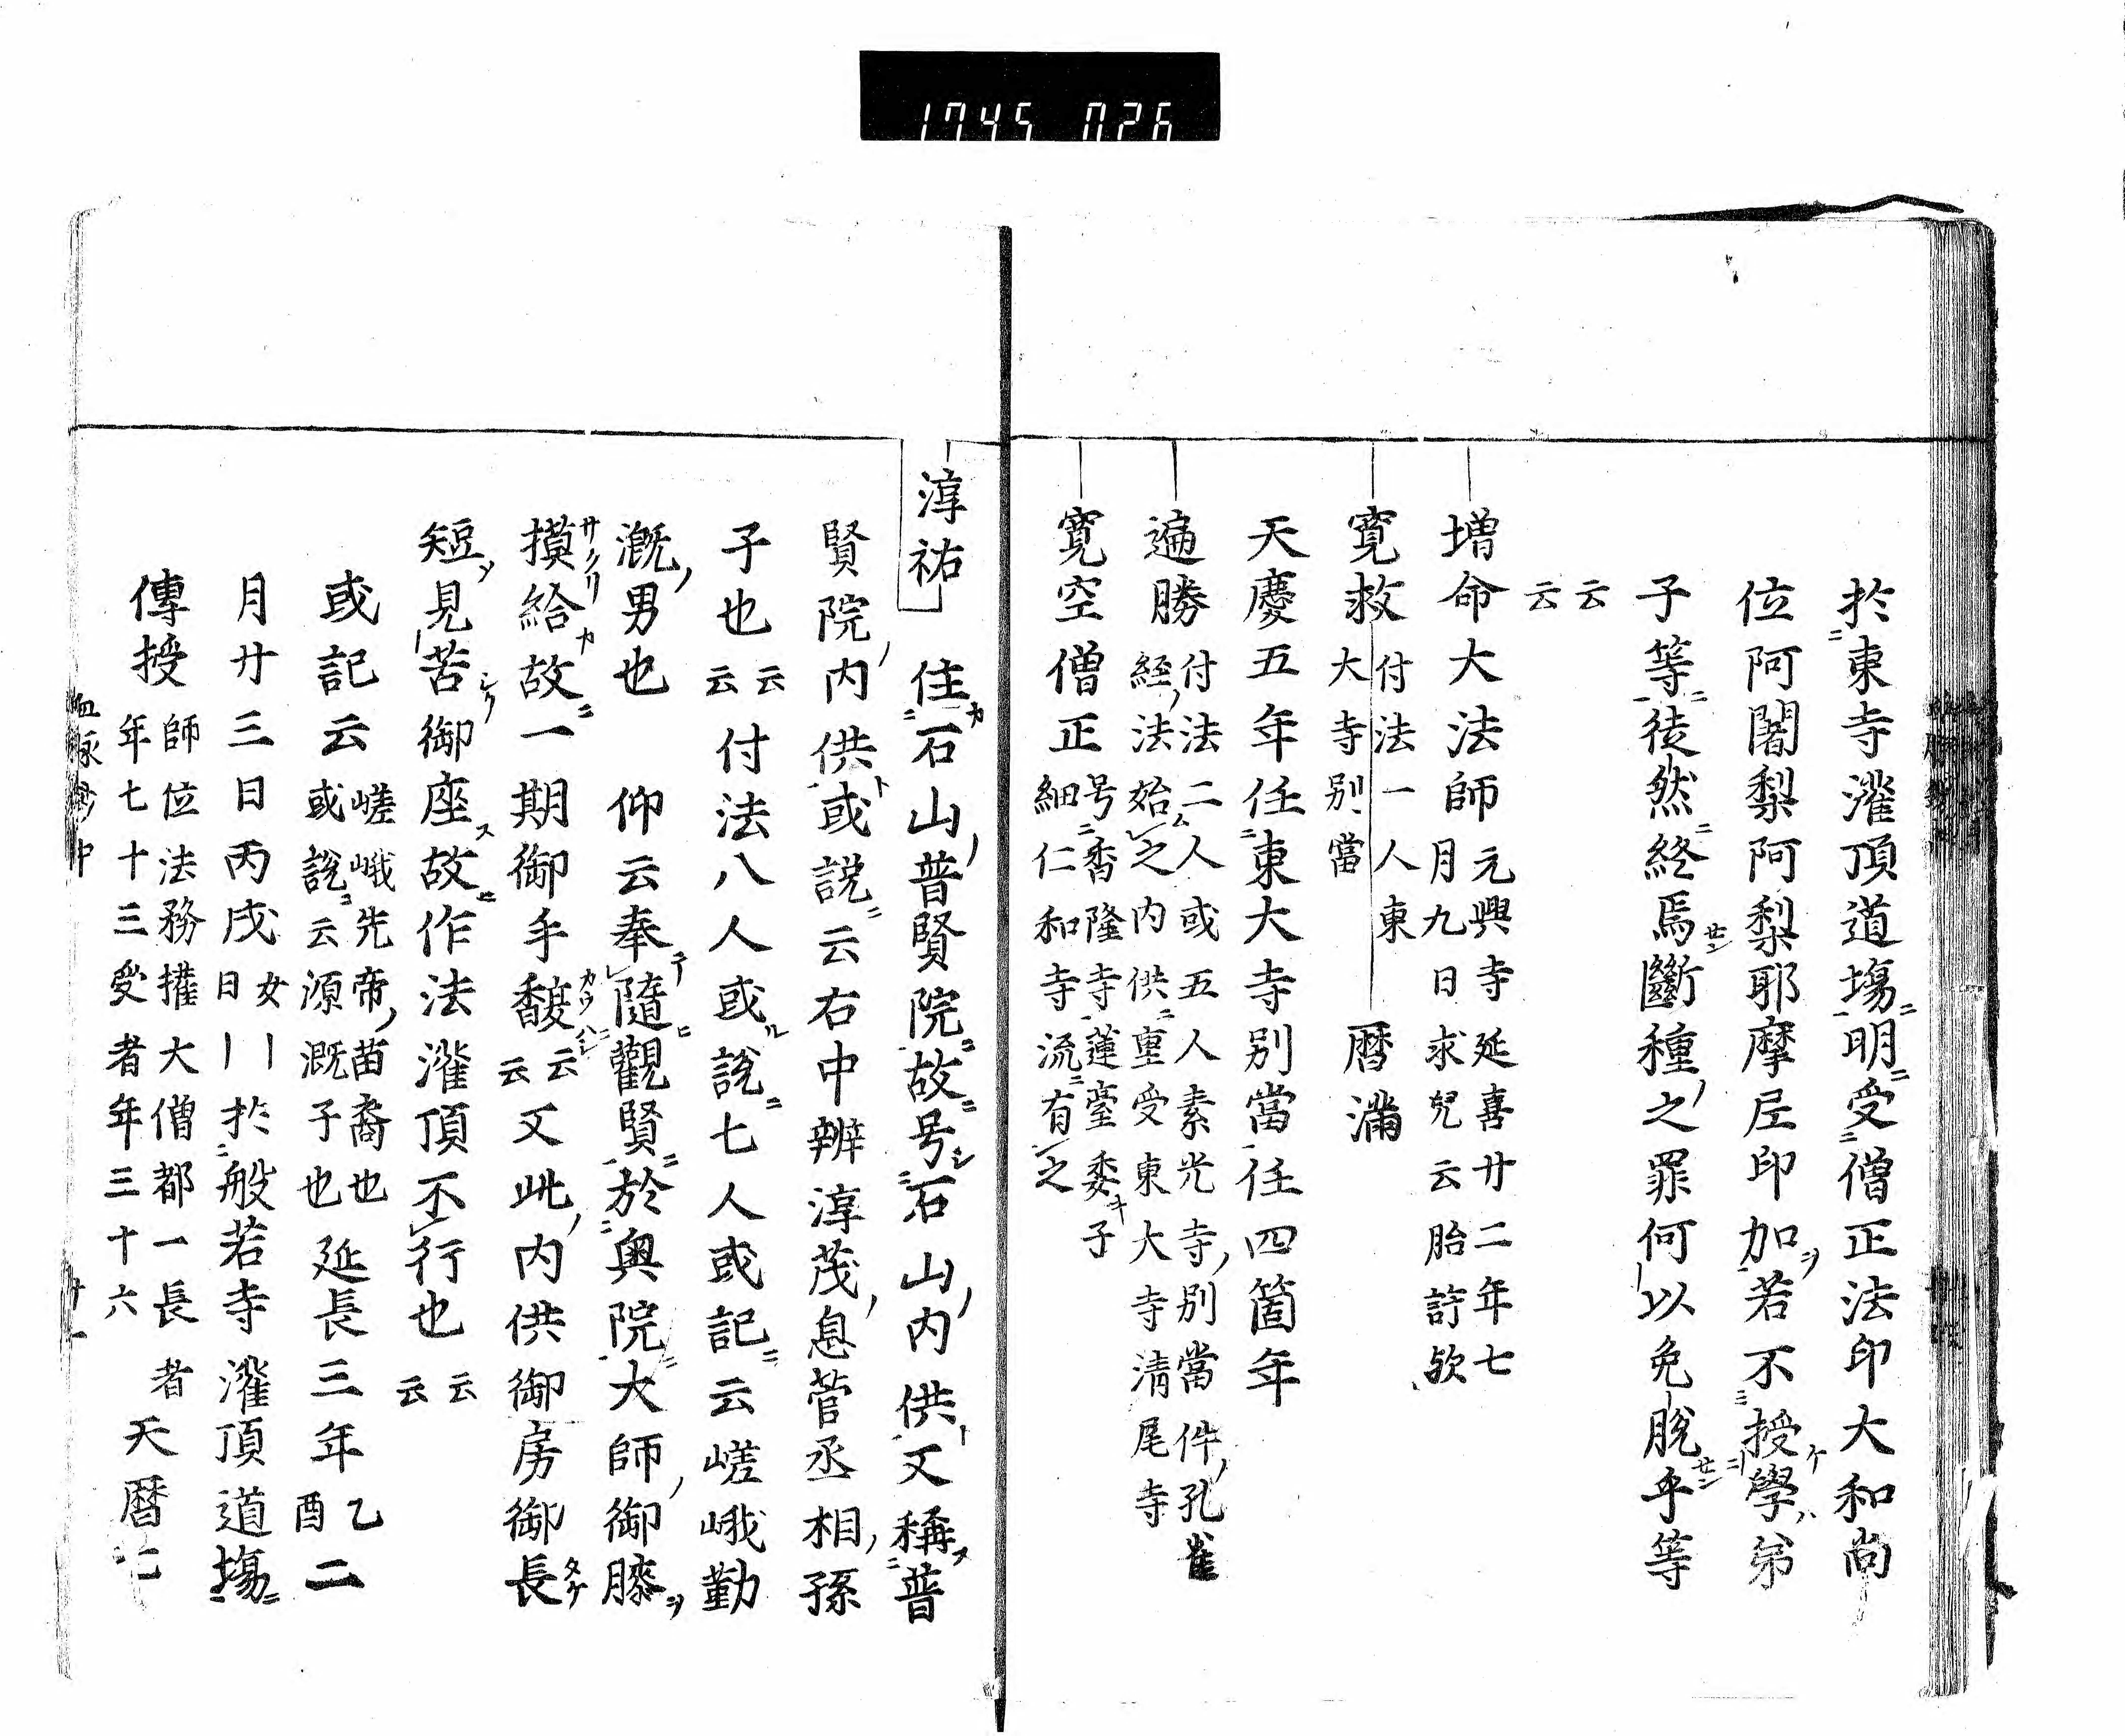 1745 026
於東寺灌頂道場明受僧正法印大和尚
位阿闍梨阿梨耶摩尼印加若不授學弟
子等徒然終焉斷種之罪何以免脱乎等
云云
増命大法師 元興寺延喜廿二年七
月九日求兒云胎謌欤
寛救 付法一人東
大寺別當
暦満
天慶五年任東大寺別當任四箇年
遍勝 付法二人或五人素光寺別當件孔雀
経法始之内供重受東大寺清尾寺
寛空僧正 号香隆寺蓮臺委子
細仁和寺流有之
淳祐 住石山普賢院故号石山内供又稱普
賢院内供或説云右中辨淳茂息菅丞相孫
子也云云付法八人或説七人或記云嵯峨勤
溉男也 仰云奉隨觀賢於奥院大師御膝
摸給故一期御手馥云云又此内供御房御長
短見苦御座故作法灌頂不行也云云
或記云 嵯峨先帝苗裔也
或説云源溉子也
延長三年乙酉二
月廿三日丙戌女日於般若寺灌頂道場
傳授 師位法務權大僧都一長者
年七十三受者年三十六
天暦七
血脉抄中 廿一